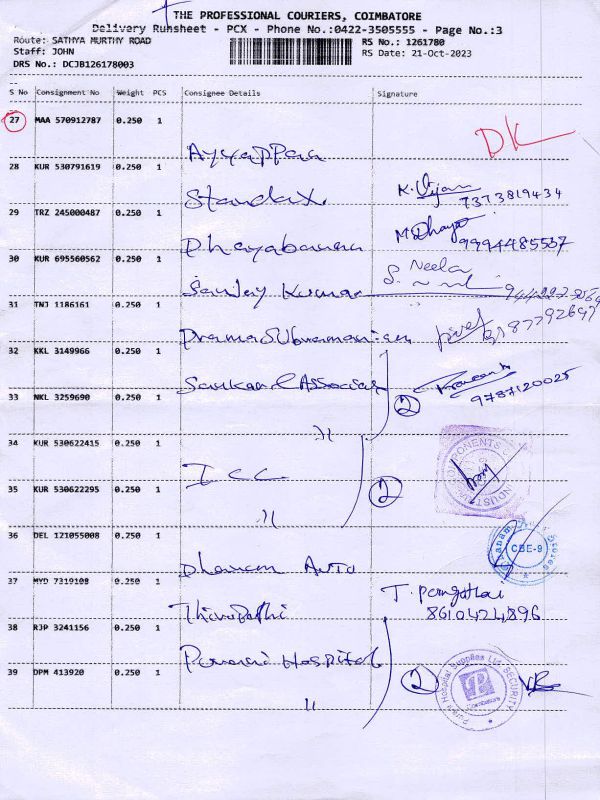 THE PROFESSIONAL COURIERS, COIMBATORE
Delivery Runsheet - PCX - Phone No.:0422-3505555 - Page No.:3
Route: SATHYA MURTHY ROAD RS No.: 1261780
Staff: JOHN RS Date: 21-Oct-2023
DRS No.: DCJB126178003
S No Consignment No Weight PCS Consignee Details Signature
27 MAA 570912787 0.250 1
Ayyappan DK
28 KUR 530791619 0.250 1
Standax K. Vijan 7373819434
29 TRZ 245000487 0.250 1
Dhayabaran M. Dhaya 9994485537
30 KUR 695560562 0.250 1
Sanjay Kumar S. Neela
31 TNJ 1186161 0.250 1
PramaSubramanian
32 KKL 3149966 0.250 1
Sankaral Associat 2 9787120025
33 NKL 3259690 0.250 1
34 KUR 530622415 0.250 1
ICC 2
35 KUR 530622295 0.250 1
36 DEL 121055008 0.250 1
Dhanam Auto CBE-9
37 MYD 7319108 0.250 1
Thirupathi T. 8610424896
38 RJP 3241156 0.250 1
Hospital 2
39 DPM 413920 0.250 1
Hospital Supplies SECURITY